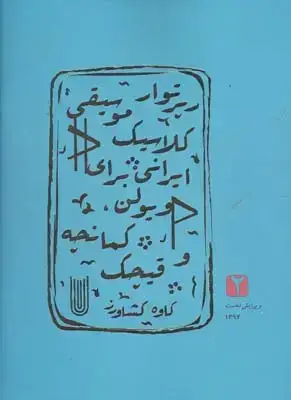 رپرتوار موسیقی
کلاسیک
ایرانی برای
ویولن،
کمانچه
و قیچک
کاوه کشاورز
۲
ویرایش نخست
۱۳۹۶